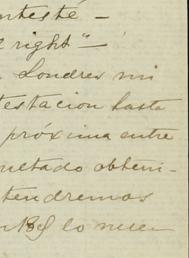 ntesté —
l right" —
Londres mi
testacion hasta
próxima entre
ultado obteni-
tendremos
lo mesm